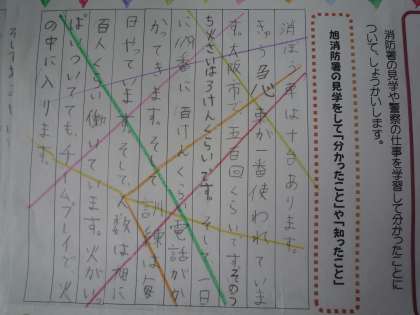 消防署の見学や警察の仕事を学習して分かったことに
ついて、しょうかいします。
旭消防署の見学をして「分かったこと」や「知ったこと」
消ぼう車は十台あります。
きゅう急車が一番使われていま
す。大阪市で五百回くらいです。そのう
ち火さいは3けんくらいです。そして一日
に119番に百けんくらい電話がか
かってきます。そして訓練は毎
日やっています。そして人数は旭に
百人くらい働いています。火がいっ
ぱいついてても、チームプレイで火
の中に入ります。